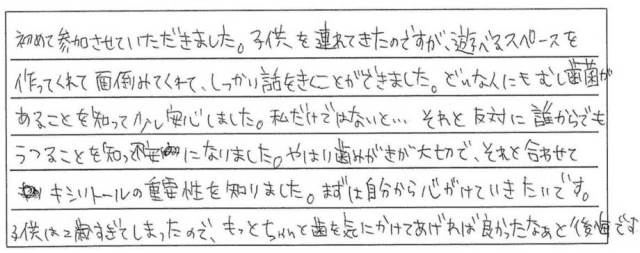 初めて参加させていただきました。子供を連れてきたのですが、遊べるスペースを
作ってくれて面倒みてくれて、しっかり話をきくことができました。どんな人にもむし歯菌が
あることを知って少し安心しました。私だけではないと… それと反対に誰からでも
うつることを知って不安になりました。やはり歯みがきが大切で、それと合わせて
キシリトールの重要性を知りました。まずは自分から心がけていきたいです。
子供は2歳すぎてしまったので、もっとちゃんと歯を気にかけてあげれば良かったなぁと後悔です